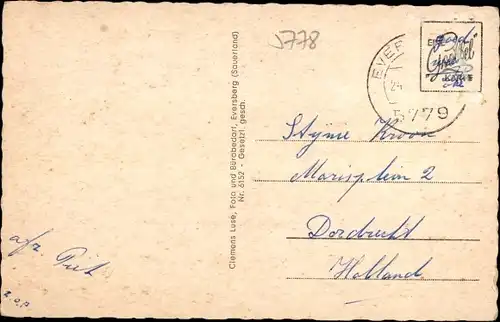 5778
EVER
5779
Styme Kroon
Marisplein 2
Dordrecht
Holland
afz. Piet
Clemens Luse, Foto und Bürobedarf, Eversberg (Sauerland)
Nr. 6152 - Gesetzl. gesch.